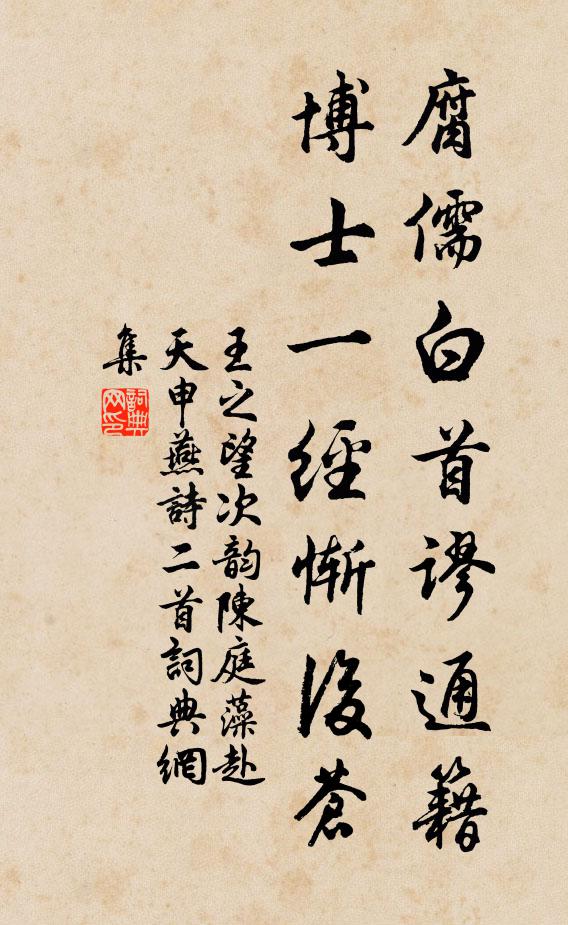 腐儒白首謬通籍
博士一經慚後蒼
王之望次韵陳庭藻赴
天申燕詩二首詞典網
集
詞典
网印